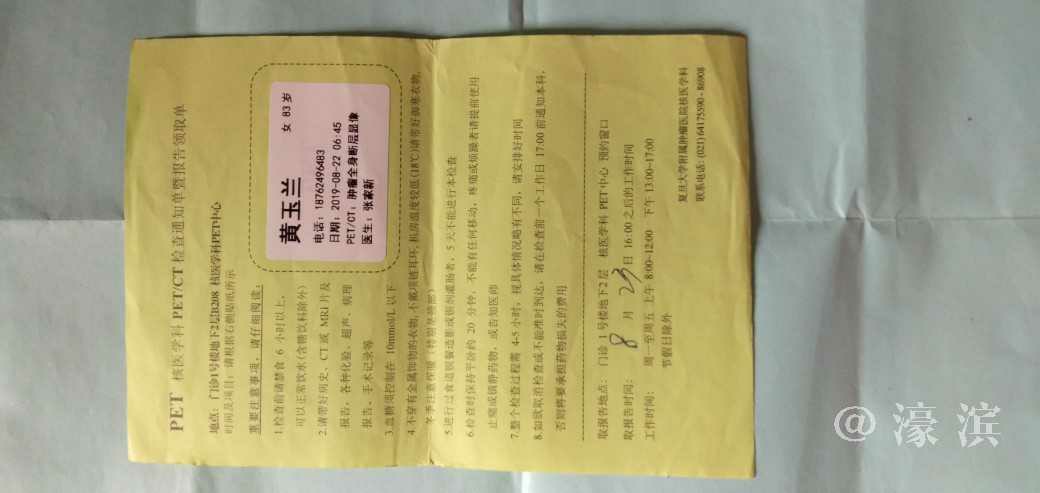 PET 核医学科 PET/CT 检查通知单暨报告领取单
地点：门诊1号楼地下2层B208 核医学科PET中心
时间及项目：请根据右侧贴纸所示
重要注意事项，请仔细阅读：
黄玉兰 女 83 岁
电话：18762496483
日期：2019-08-22 06:45
PET/CT：肿瘤全身断层显像
医生：张家新
1.检查前请禁食 6 小时以上，
可以正常饮水(含糖饮料除外)
2.请带好病史、CT 或 MRI 片及
报告、各种化验、超声、病理
报告、手术记录等
3.血糖须控制在 10mmol/L 以下
4.不穿有金属饰物的衣物，不戴项链耳环，机房温度较低(18℃)请带好御寒衣物，
冬季注意保暖（特别是颈部）
5.进行过食道钡餐造影或钡剂灌肠者，5 天不能进行本检查
6.检查时保持平卧约 20 分钟，不能有任何移动，疼痛或烦躁者请提前使用
止痛或镇静药物，或告知医师
7.整个检查过程需 4-5 小时，视具体情况略有不同，请安排好时间
8.如欲取消检查或不能准时到达，请在检查前一个工作日 17:00 前通知本科，
否则将要承担药物损失的费用
取报告地点：门诊 1 号楼地下2层 核医学科 PET中心 预约窗口
取报告时间：8 月 23 日 16:00 之后的工作时间
工作时间：周一至周五 上午 8:00~12:00 下午 13:00~17:00
节假日除外
复旦大学附属肿瘤医院核医学科
联系电话：(021) 64175590 - 86908
@濠滨